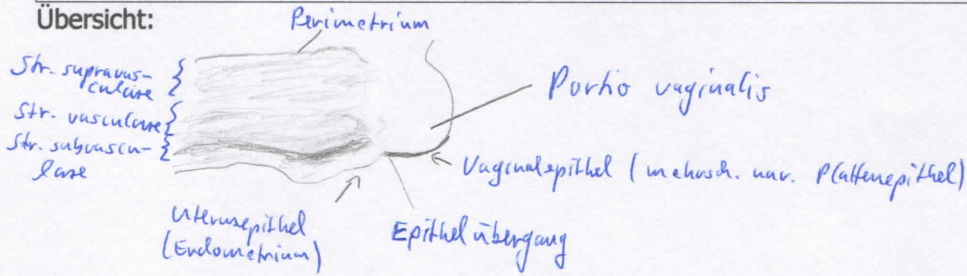 Übersicht:
Perimetrium
Str. supravas-
culare
Str. vasculare
Str. subvascu-
lare
Portio vaginalis
Vaginalepithel (mehrsch. unv. Plattenepithel)
Uterusepithel
(Endometrium)
Epithelübergang